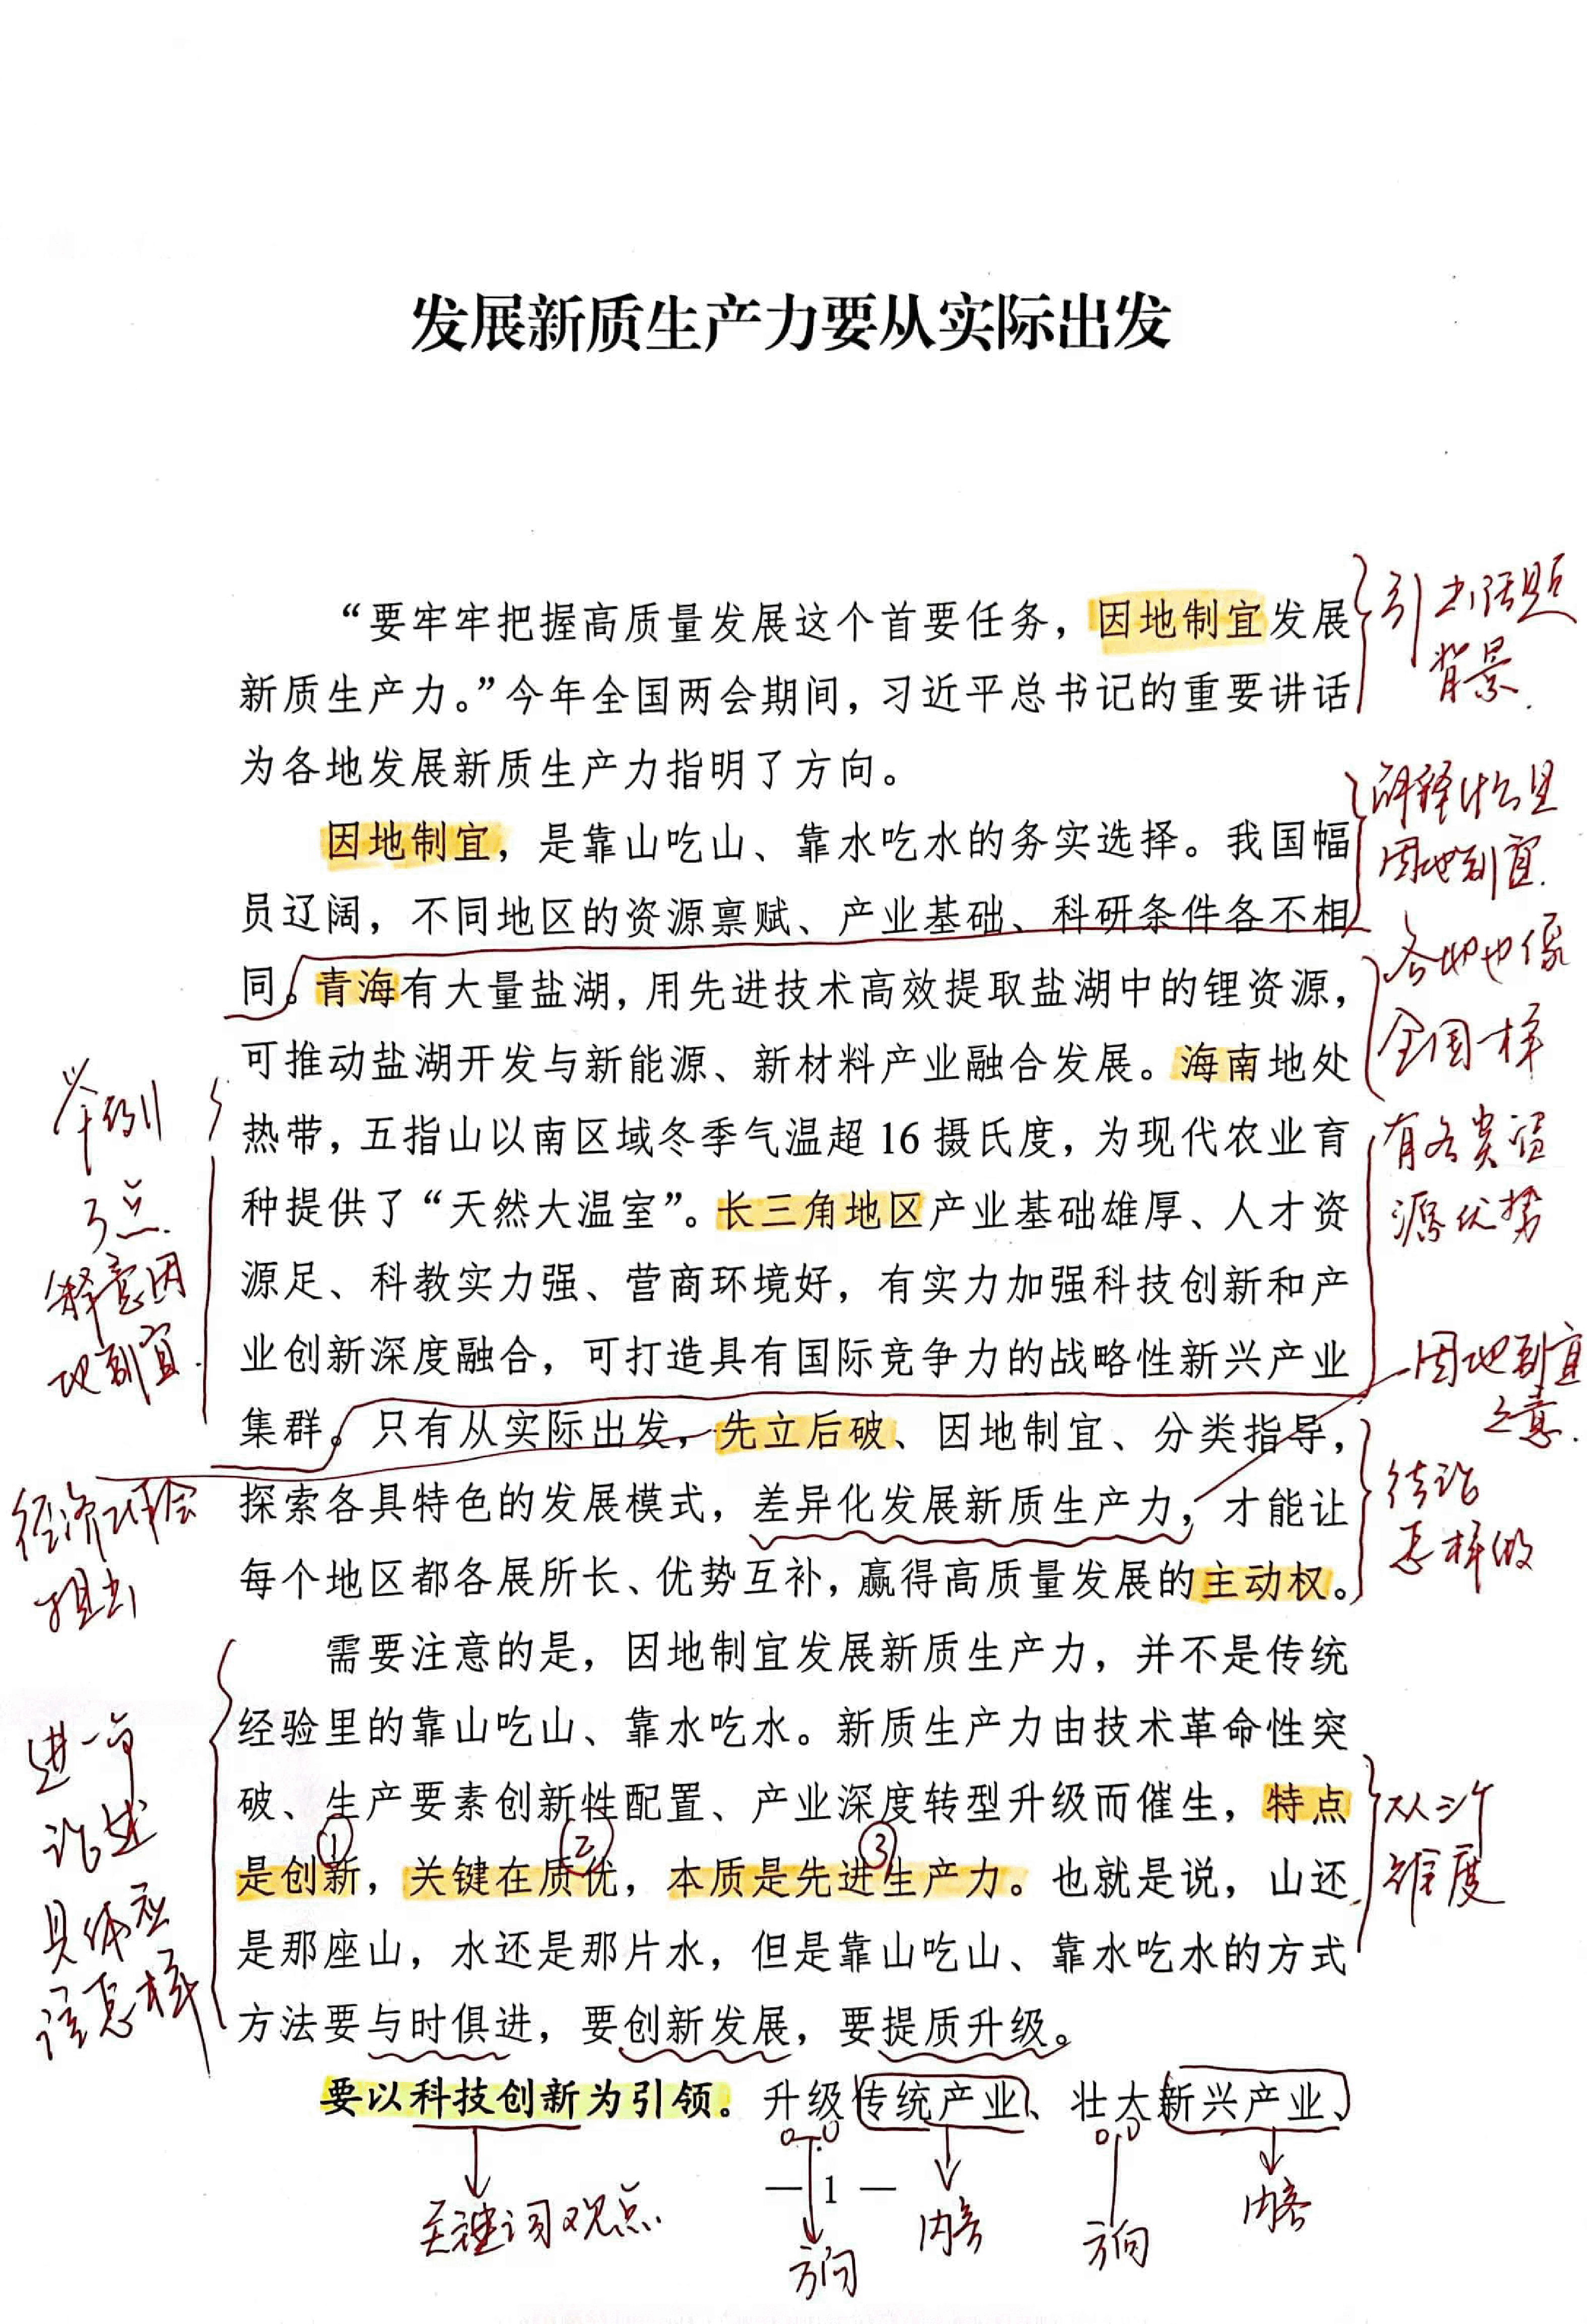 发展新质生产力要从实际出发
“要牢牢把握高质量发展这个首要任务，因地制宜发展
新质生产力。”今年全国两会期间，习近平总书记的重要讲话
为各地发展新质生产力指明了方向。
引出话题
背景.
因地制宜，是靠山吃山、靠水吃水的务实选择。我国幅
员辽阔，不同地区的资源禀赋、产业基础、科研条件各不相
同。青海有大量盐湖，用先进技术高效提取盐湖中的锂资源，
可推动盐湖开发与新能源、新材料产业融合发展。海南地处
热带，五指山以南区域冬季气温超 16 摄氏度，为现代农业育
种提供了“天然大温室”。长三角地区产业基础雄厚、人才资
源足、科教实力强、营商环境好，有实力加强科技创新和产
业创新深度融合，可打造具有国际竞争力的战略性新兴产业
集群。只有从实际出发，先立后破、因地制宜、分类指导，
探索各具特色的发展模式，差异化发展新质生产力，才能让
每个地区都各展所长、优势互补，赢得高质量发展的主动权。
解释什么是
因地制宜.
各地也像
全国一样
有各类资
源优势
因地制宜
之意.
结论
怎样做
举例
3点.
释意因
地制宜.
经济工作会
提出
需要注意的是，因地制宜发展新质生产力，并不是传统
经验里的靠山吃山、靠水吃水。新质生产力由技术革命性突
破、生产要素创新性配置、产业深度转型升级而催生，特点
① ② ③
是创新，关键在质优，本质是先进生产力。也就是说，山还
是那座山，水还是那片水，但是靠山吃山、靠水吃水的方式
方法要与时俱进，要创新发展，要提质升级。
从三个
维度
进一步
论述
具体应
该怎样
要以科技创新为引领。升级传统产业、壮大新兴产业、
关键词观点.
方向
内容
方向
内容
— 1 —